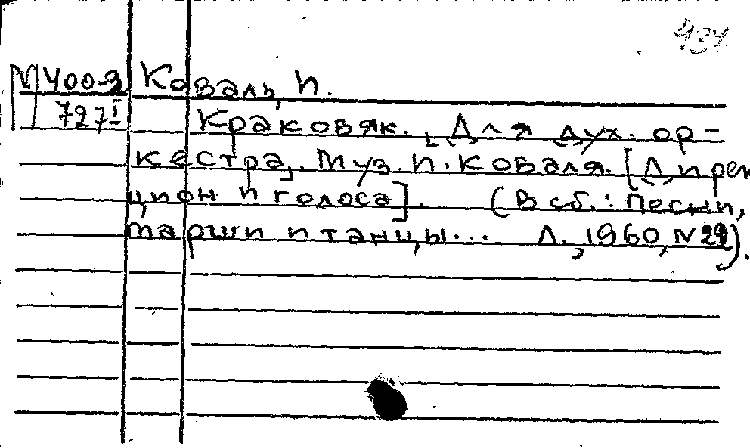 434
М 400-3 Коваль, И.
727 I Краковяк. [Для дух. ор-
кестра]. Муз. И. Коваля. [Дирек
цион и голоса]. (В сб.: Песни,
марши и танцы... Л., 1960, № 29).